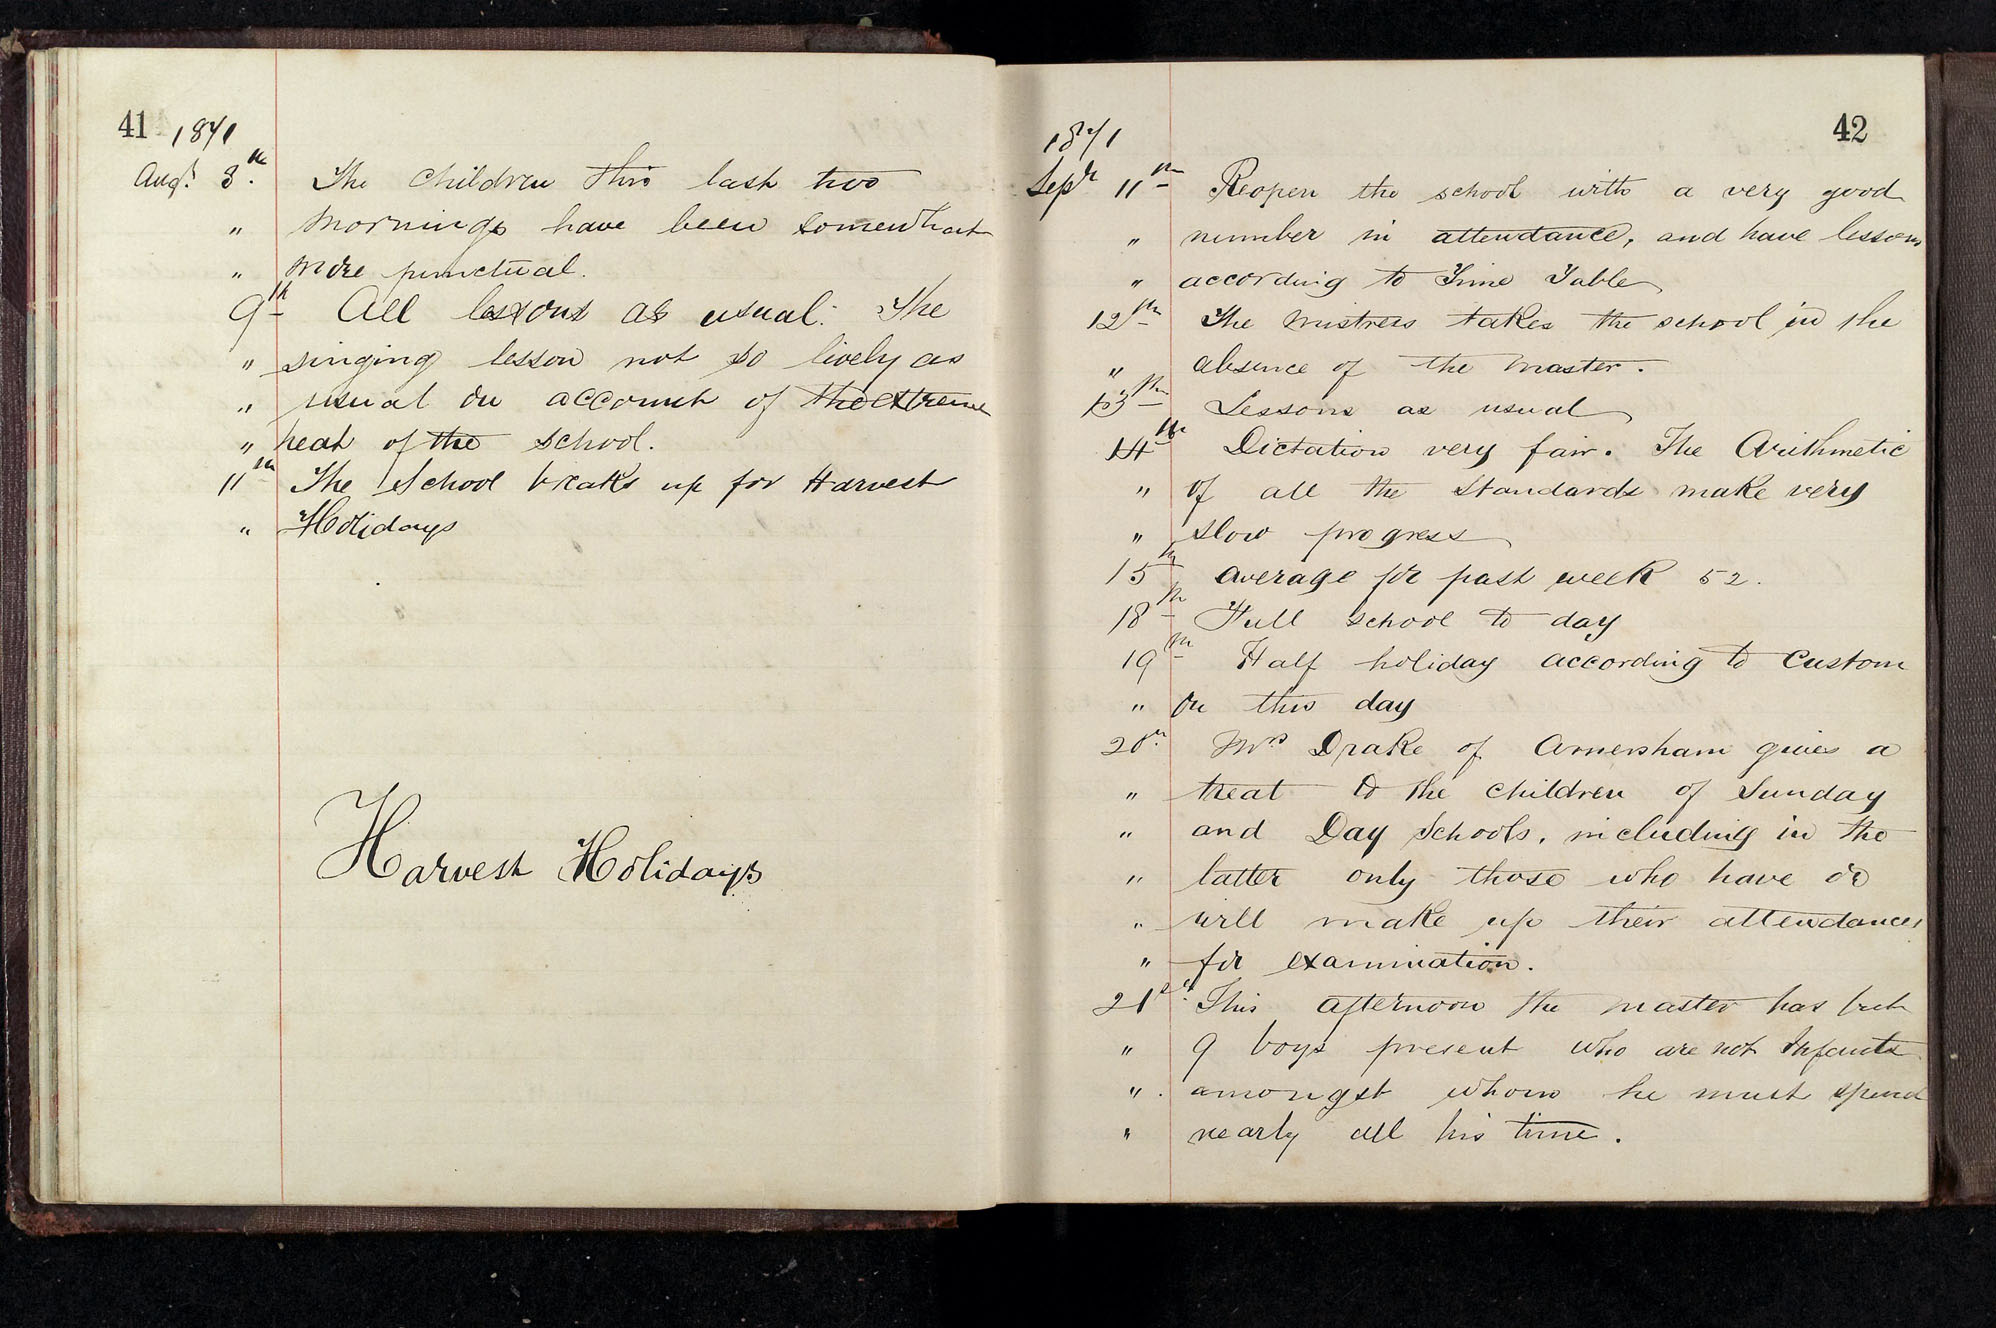 41
1871
Augt. 8th. The children this last two
" mornings have been somewhat
" more punctual.
9th All lessons as usual. The
" singing lesson not so lively as
" usual on account of the extreme
" heat of the school.
11th The School breaks up for Harvest
" Holidays
Harvest Holidays
42
1871
Septr 11th Reopen the school with a very good
" number in attendance, and have lessons
" according to Time Table
12th The Mistress takes the school in the
" absence of the Master.
13th Lessons as usual
14th Dictation very fair. The Arithmetic
" of all the Standards make very
" slow progress
15th Average for past week 52.
18th Full school to day
19th Half holiday according to Custom
" on this day
20th. Mrs Drake of Amersham gives a
" treat to the children of Sunday
" and Day Schools, including in the
" latter only those who have or
" will make up their attendances
" for examination.
21st. This afternoon the master has but
" 9 boys present who are not Infants
" amongst whom he must spend
" nearly all his time.